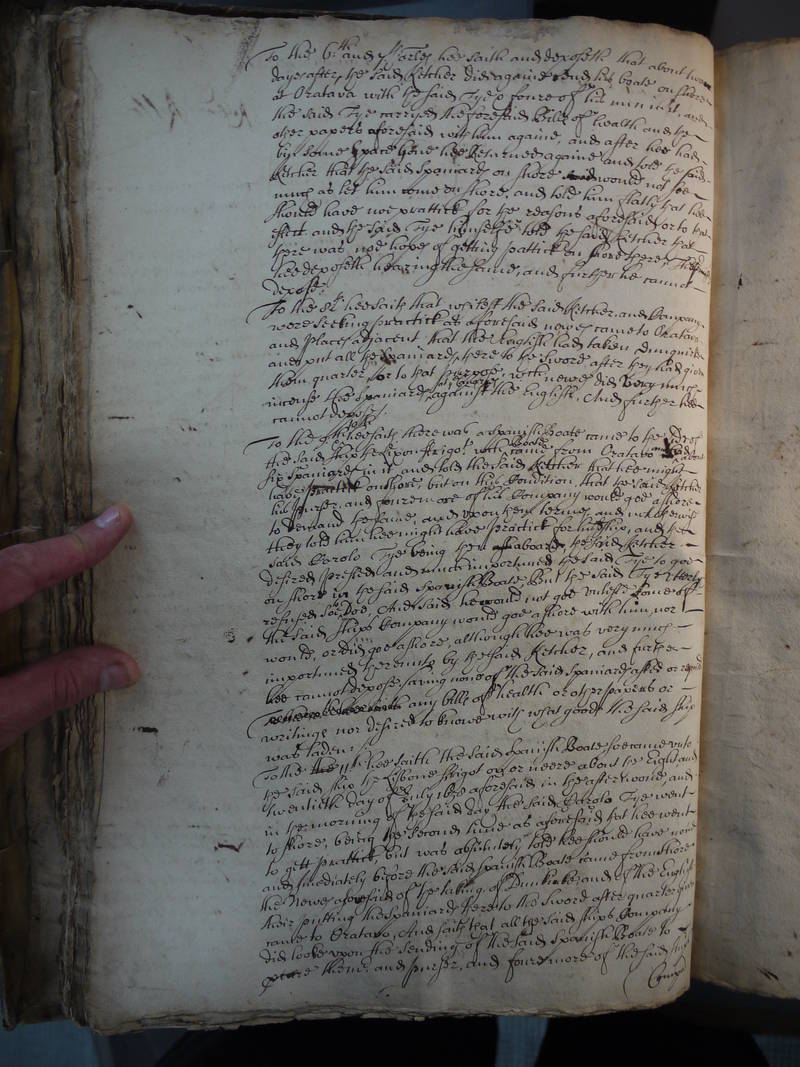 To the 6th and Arles hee saith and deposeth that about two
dayes after the said Ketcher did againe send his boate on shore
at Oratava with the said Tye & foure of his men in it, and
the said Tye carryed the foresaid bills of health and the
other papers aforesaid with him againe, and after hee had
bin some space gone hee returned againe and told the said
Ketcher that the said Spaniards on shore would not soe
much as let him come on shore, and told him flatly that hee
should have noe prattick for the reasons aforesaid, or to that
effect and the said Tye himselfe told the said Ketcher that
there was noe hope of getting prattick on shore there, this
hee deposeth hearing the same, and further he cannot
depose./
To the 8th hee saith that whilest the said Ketcher and Company
were seeking practick as aforesaid newes came to Oratava
and places adjacent that the English had taken Dunquirke
and put all the Spaniards there to the sword after they had given
them quarter, or to that purpose, which newes did very much
incense the Spaniards against the English, And further hee
cannot depose./
To the 9th hee saith there was a Spanish Boate came to the side of
the said ship the Lixbon frigot with came from Oratava
six Spaniards in it, and told the said Ketcher that hee might
have practick on shore, but on this Condition, that the said Ketcher
his purser, and foure more of his Company would goe ashore
to demand the same, and upon them termes, and not otherwise
they told him hee might have practick for his ship, and the
said Carolo Tye being then aboard, the said Ketcher
desired pressed and much importuned the said Tye to goe
on shore in the said Spanish Boate, but the said Tye utterly
refused soe to doe, And said he would not goe unlesse some of
the said ships Company would goe ashore with him, nor
would, or did goe ashore, although hee was very much
importuned thereunto by the said Ketcher, and further
hee cannot depose saving none of the said Spaniards asked or required
any bills of health or other papers or
writings nor desired to knowe with what goods the said ship
was laden./
To the 11th hee saith the said Spanish Boate soe came unto
the said ship the Lisbone frigot on or neere about the eight and
twentieth day of July 1658 aforesaid in the afternoone, and
in the morning of the said day the said Carolo Tye went
to shore, being the second time as aforesaid that hee went
to gett prattick, but was absolutely told hee should have none
and imediately before the said Spanish Boate came from shore
the newes aforesaid of the taking of Dunkirke, and of the English
their putting the Spaniards there to the sword after quarter given
came to Oratavo, And saith that all the said ships Company
did looke upon the sending of the said Spanish Boate to
them, and purser, and foure more of the said ships
Company